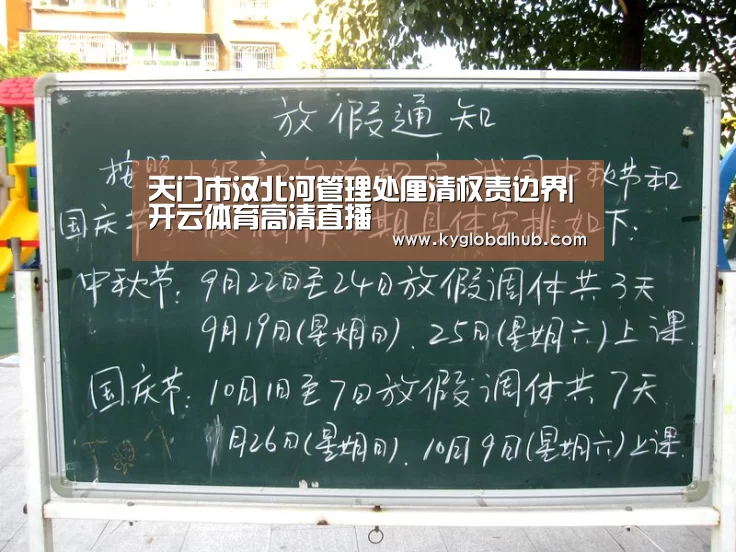 放假通知
天门市汉北河管理处厘清权责边界|
开云体育高清直播
www.kyglobalhub.com
秋节和
国庆节
下:
中秋节:9月22日至24日放假调休共3天
9月19日(星期日)、25日(星期六)上课.
国庆节:10月1日至7日放假调休共7天
月26日(星期日)、10月9日(星期六)上课.